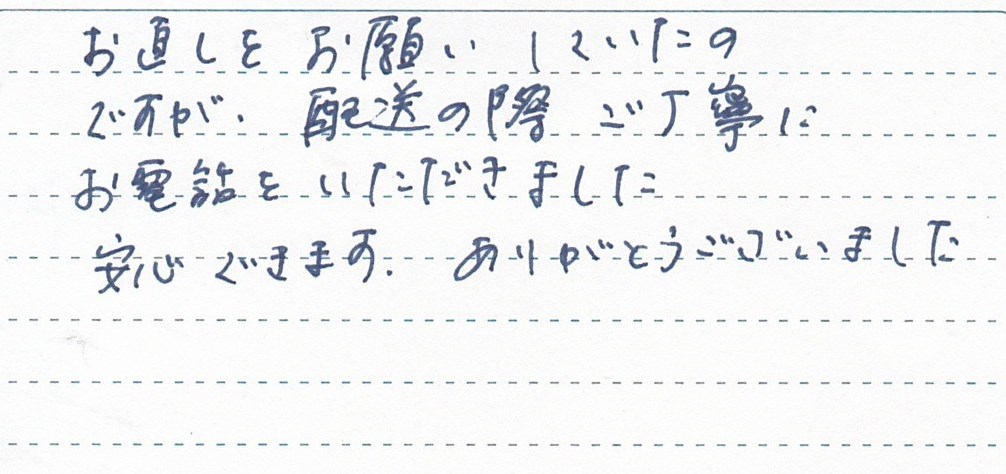 お直しを お願い していたの
ですが、配送の際 ご丁寧に
お電話を いただきました
安心できます。ありがとうございました